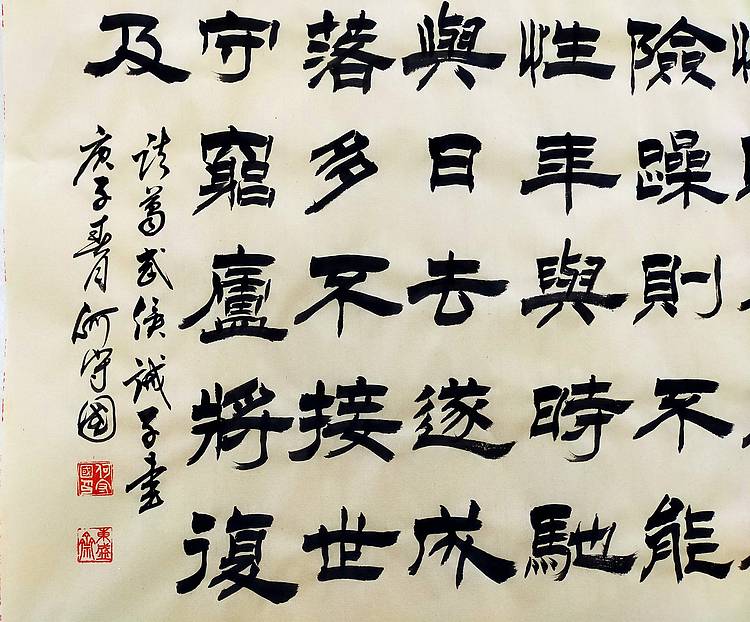 險躁則不能
性年與時馳
與日去遂成
落多不接世
守窮廬將復
及
諸葛武侯誡子書
庚子春月何守國
何守國印